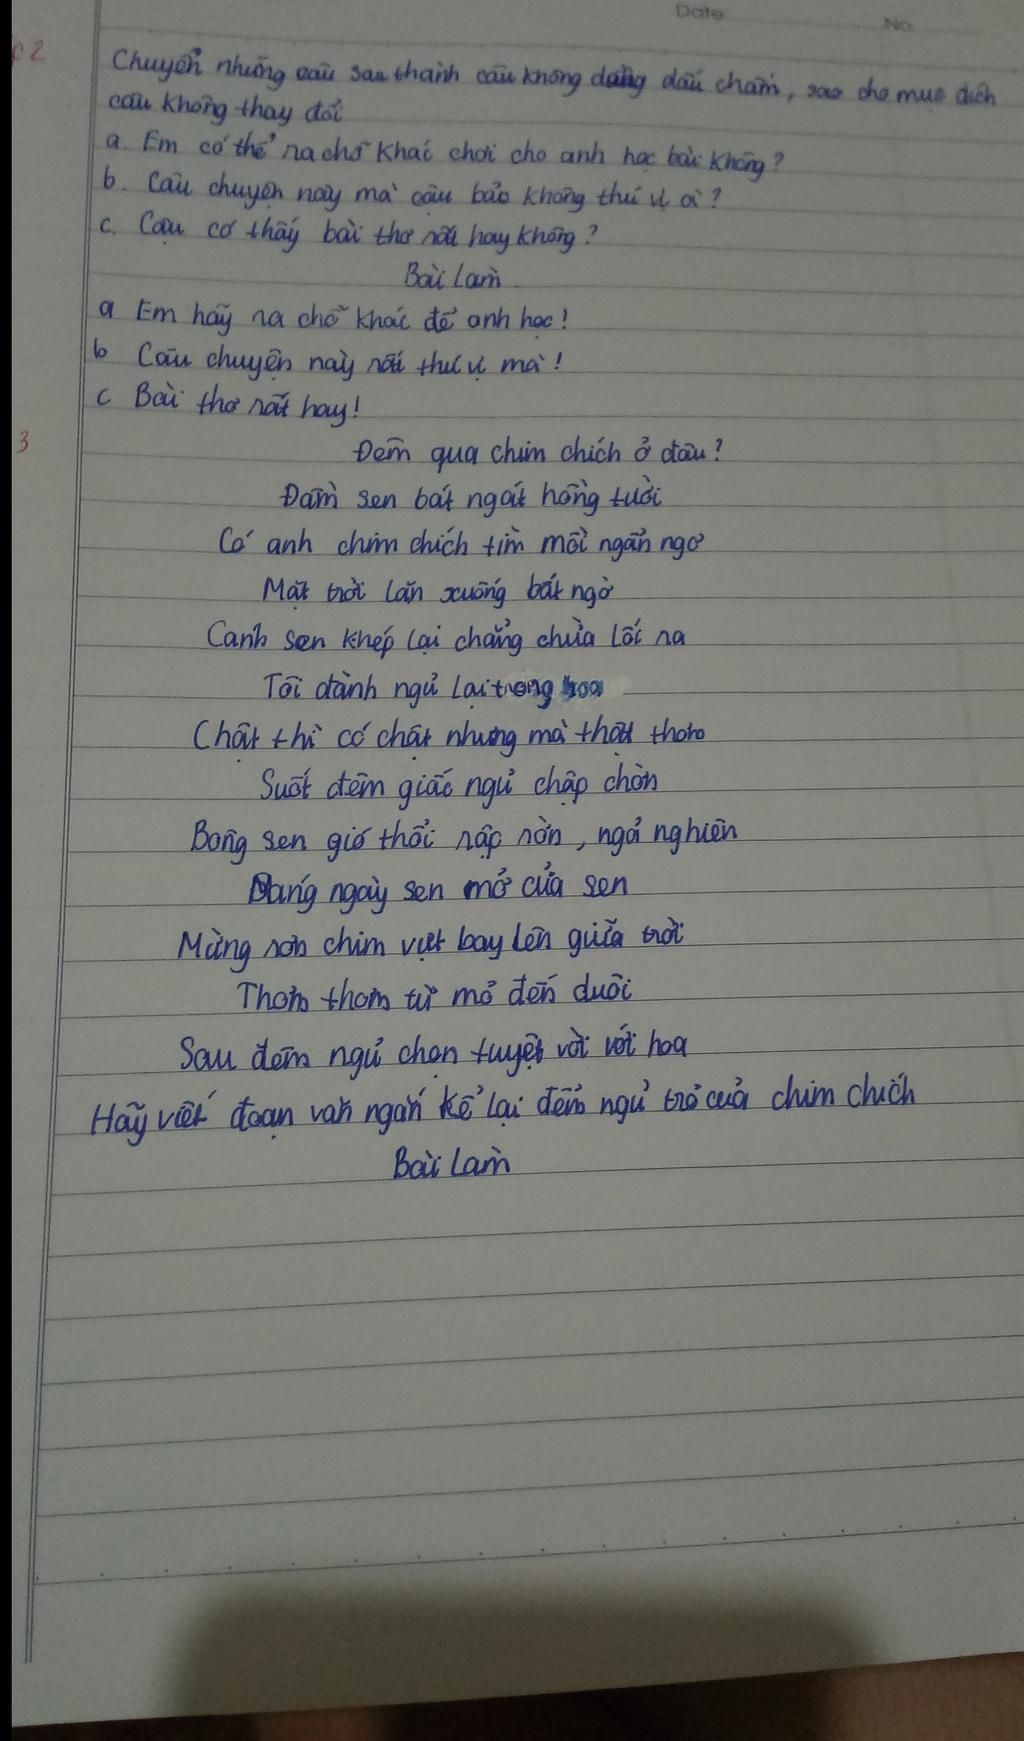 Date
No.
c2
Chuyển những câu sau thành câu không dùng dấu chấm, sao cho mục đích
câu không thay đổi
a. Em có thể ra chỗ khác chơi cho anh học bài không?
b. Câu chuyện này mà cậu bảo không thú vị à?
c. Cậu có thấy bài thơ rất hay không?
Bài làm
a Em hãy ra chỗ khác để anh học!
b Câu chuyện này rất thú vị mà!
c Bài thơ rất hay!
3
Đêm qua chim chích ở đâu?
Đầm sen bát ngát hồng tười
Có anh chim chích tìm mồi ngẩn ngơ
Mặt trời lặn xuống bất ngờ
Canh sen khép lại chẳng chừa lối ra
Tôi đành ngủ lại trong hoa
Chật thì có chật nhưng mà thật thơm
Suốt đêm giấc ngủ chập chờn
Bông sen gió thổi rập rờn, ngả nghiên
Sáng ngày sen mở cửa sen
Mừng rơn chim vụt bay lên giữa trời
Thơm thơm từ mỏ đến đuôi
Sau đêm ngủ chọn tuyệt vời với hoa
Hãy viết đoạn văn ngắn kể lại đêm ngủ trọ của chim chích
Bài làm